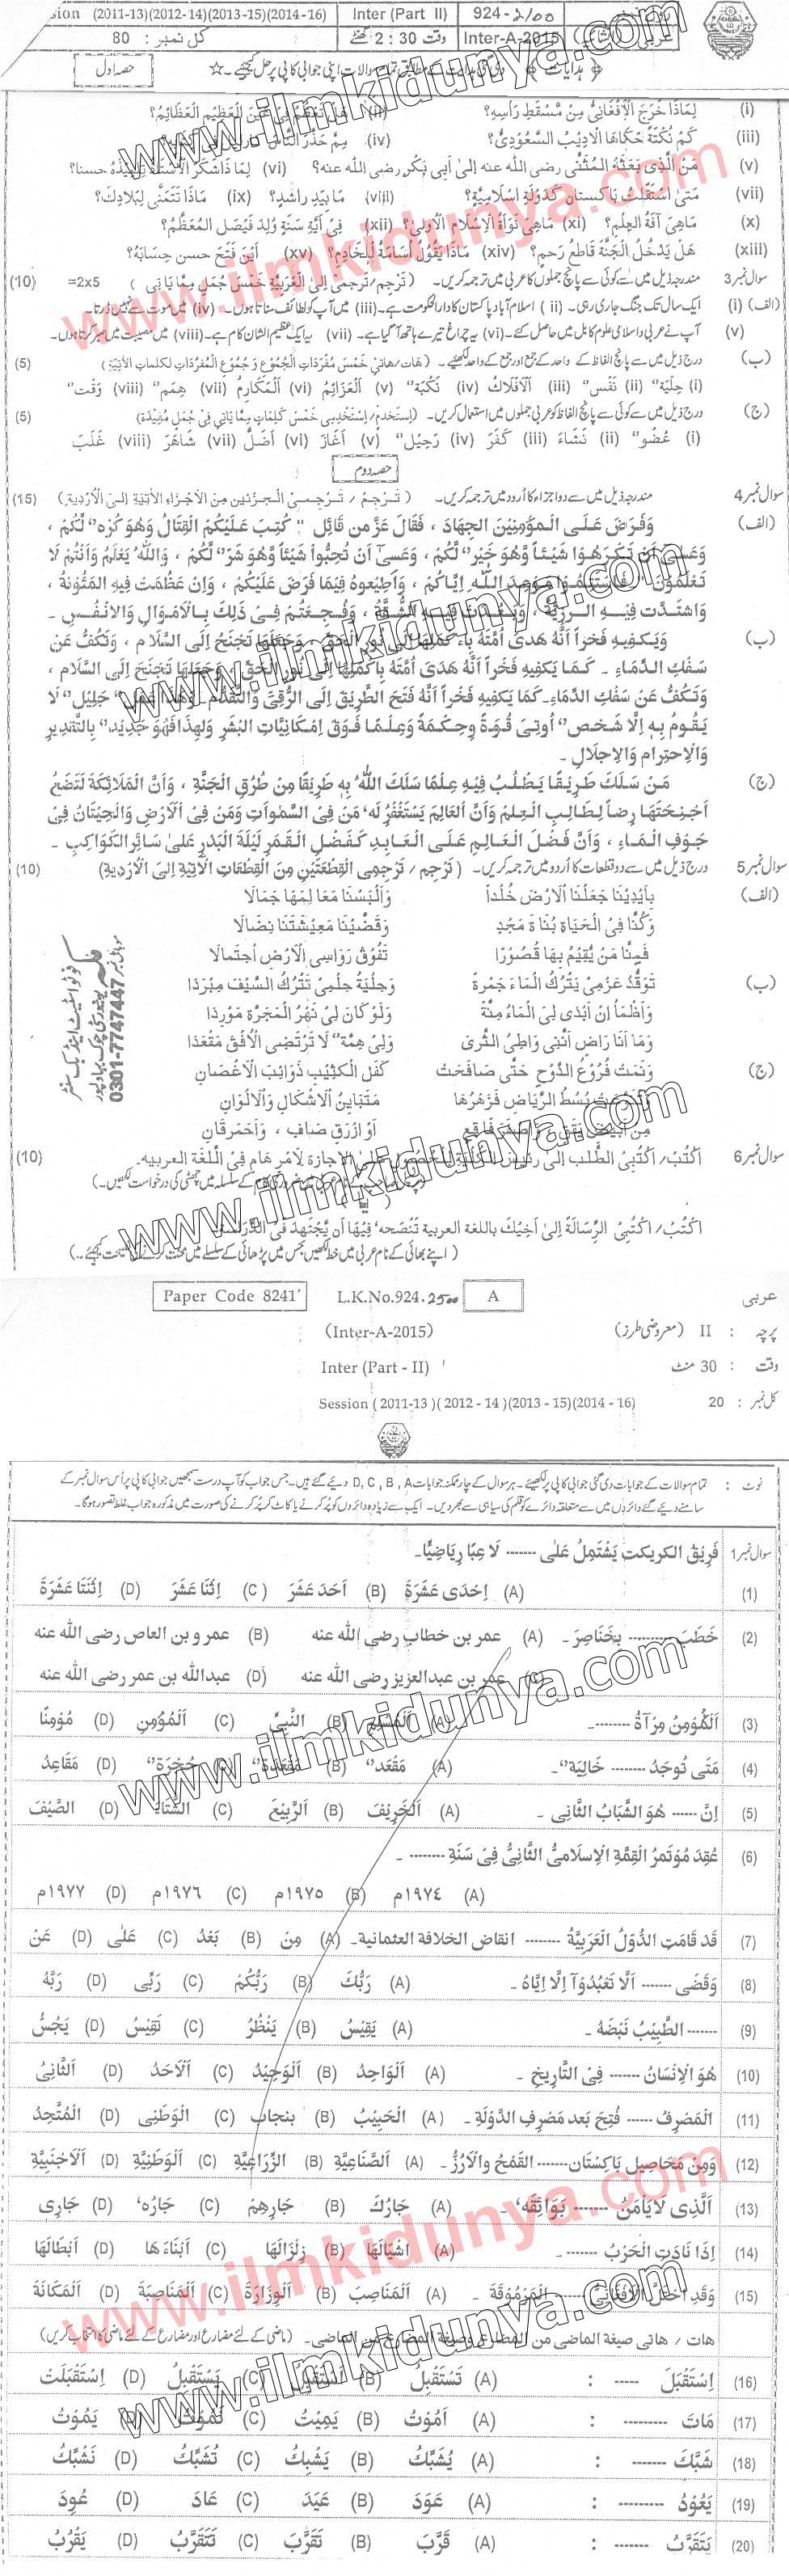 Session (2011-13)(2012-14)(2013-15)(2014-16) Inter (Part II) 924-2100
کل نمبر : 80 وقت 2 : 30 گھنٹے Inter-A-2015
حصہ اول
(i) لِمَاذَا خَرَجَ الْاَفْغَانِيُّ مِنْ مَّسْقَطِ رَاْسِهٖ؟
(iii) كَمْ نُكْتَةً حَكَاهَا الْاَدِيْبُ السَّعُوْدِيُّ؟ (iv)
(v) مَنِ الَّذِىْ بَعَثَهُ الْمُثَنّٰى رضى الله عنه اِلىٰ اَبِىْ بَكْرٍ رضى الله عنه؟ (vi)
(vii) مَتىٰ اسْتَقَلَّتْ بَاكِسْتَان كَدَوْلَةٍ اِسْلَامِيَّةٍ؟ (viii) مَا بِيَدِ رَاشِدٍ؟ (ix) مَاذَا تَتَمَنّٰى لِبِلَادِكَ؟
(x) مَاهِىَ آفَةُ الْعِلْمِ؟ (xi) مَاهِىَ نَوَاةُ الْاِسْلَامِ الْاُوْلىٰ؟ (xii) فِىْ اَيَّةِ سَنَةٍ وُلِدَ فَيْصَلُ الْمُعَظَّمُ؟
(xiii) هَلْ يَدْخُلُ الْجَنَّةَ قَاطِعُ رَحِمٍ؟ (xiv) مَاذَا يَقُوْلُ اُسَامَةُ لِلْخَادِمِ؟ (xv) اَيْنَ فَتَحَ حسن حِسَابَهٗ؟
سوال نمبر 3 مندرجہ ذیل میں سے کوئی سے پانچ جملوں کا عربی میں ترجمہ کریں۔ (تَرْجِمْ/تَرْجِمِىْ اِلَى الْعَرَبِيَّةِ خَمْسَ جُمَلٍ مِمَّا يَاتِى) 2x5= (10)
(الف) (i) ایک سال تک جنگ جاری رہی۔ (ii) اسلام آباد پاکستان کا دارالحکومت ہے۔ (iii) میں آپ کو لطائف سناتا ہوں۔ (iv) میں موت سے نہیں ڈرتا۔
(v) آپ نے عربی و اسلامی علوم کابل میں حاصل کئے۔ (vi) یہ چراغ تیرے ہاتھ آگیا ہے۔ (vii) یہ ایک عظیم الشان کام ہے۔ (viii) میں مصیبت میں صبر کرتا ہوں۔
(ب) درج ذیل میں سے پانچ الفاظ کے واحد کے جمع اور جمع کے واحد لکھیے۔ (هَاتِ/هَاتِىْ خَمْسَ مُفْرَدَاتِ الْجُمُوْعِ وَ جُمُوْعِ الْمُفْرَدَاتِ لِكَلِمَاتِ الْاٰتِيَةِ) (5)
(i) حِلْيَةٌ (ii) نَفْسٌ (iii) اَلْاَفْلَاكُ (iv) نَكْبَةٌ (v) اَلْعَزَائِمُ (vi) اَلْمَكَارِمُ (vii) هِمَمٌ (viii) وَقْتٌ
(ج) درج ذیل میں سے کوئی سے پانچ الفاظ کو عربی جملوں میں استعمال کریں۔ (اِسْتَخْدِمْ/اِسْتَخْدِمِىْ خَمْسَ كَلِمَاتٍ مِمَّا يَاتِىْ فِىْ جُمَلٍ مُفِيْدَةٍ) (5)
(i) عُضْوٌ (ii) نَشَاءَ (iii) كَفَرَ (iv) رَحِيْلٌ (v) اَغَارَ (vi) اَضَلَّ (vii) شَاهَرَ (viii) غَلَبَ
حصہ دوم
سوال نمبر 4 مندرجہ ذیل میں سے دو اجزاء کا اردو میں ترجمہ کریں۔ (تَرْجِمْ / تَرْجِمِىْ الْجُزْئَيْنِ مِنَ الْاَجْزَاءِ الْاٰتِيَةِ اِلَى الْاُرْدِيَةِ) (15)
(الف) وَفَرَضَ عَلَى الْمُؤْمِنِيْنَ الْجِهَادَ ، فَقَالَ عَزَّ مِنْ قَائِلٍ " كُتِبَ عَلَيْكُمُ الْقِتَالُ وَهُوَ كُرْهٌ لَّكُمْ ،
وَعَسىٰ اَنْ تَكْرَهُوْا شَيْئًا وَّهُوَ خَيْرٌ لَّكُمْ ، وَعَسىٰ اَنْ تُحِبُّوْا شَيْئًا وَّهُوَ شَرٌّ لَّكُمْ ، وَاللّٰهُ يَعْلَمُ وَاَنْتُمْ لَا
تَعْلَمُوْنَ" فَاسْتَتِمُّوْا مَوْعِدَ اللّٰهِ اِيَّاكُمْ ، وَاَطِيْعُوْهُ فِيْمَا فَرَضَ عَلَيْكُمْ ، وَاِنْ عَظُمَتْ فِيْهِ الْمَئُوْنَةُ ،
وَاشْتَدَّتْ فِيْهِ الرَّزِيَّةُ ، وَبَعُدَتْ فِيْهِ الشُّقَّةُ ، وَفُجِعْتُمْ فِىْ ذٰلِكَ بِالْاَمْوَالِ وَالْاَنْفُسِ ۔
(ب) وَيَكْفِيْهِ فَخْرًا اَنَّهُ هَدىٰ اُمَّتَهٗ بِاَكْمَلِهَا اِلىٰ نُوْرِ الْحَقِّ ، وَجَعَلَهَا تَجْنَحُ اِلَى السَّلَامِ ، وَتَكُفُّ عَنْ
سَفْكِ الدِّمَاءِ ۔ كَمَا يَكْفِيْهِ فَخْرًا اَنَّهُ هَدىٰ اُمَّتَهٗ بِاَكْمَلِهَا اِلىٰ نُوْرِ الْحَقِّ ، وَجَعَلَهَا تَجْنَحُ اِلَى السَّلَامِ ،
وَتَكُفُّ عَنْ سَفْكِ الدِّمَاءِ۔ كَمَا يَكْفِيْهِ فَخْرًا اَنَّهُ فَتَحَ الطَّرِيْقَ اِلَى الرُّقِىِّ وَالتَّقَدُّمِ ۔ وَهٰذَا عَمَلٌ جَلِيْلٌ لَا
يَقُوْمُ بِهٖ اِلَّا شَخْصٌ اُوْتِىَ قُوَّةً وَحِكْمَةً وَعِلْمًا فَوْقَ اِمْكَانِيَّاتِ الْبَشَرِ وَلِهٰذَا فَهُوَ جَدِيْدٌ بِالتَّقْدِيْرِ
وَالْاِحْتِرَامِ وَالْاِجْلَالِ ۔
(ج) مَنْ سَلَكَ طَرِيْقًا يَطْلُبُ فِيْهِ عِلْمًا سَلَكَ اللّٰهُ بِهٖ طَرِيْقًا مِنْ طُرُقِ الْجَنَّةِ ، وَاَنَّ الْمَلَائِكَةَ لَتَضَعُ
اَجْنِحَتَهَا رِضًا لِطَالِبِ الْعِلْمِ وَاَنَّ الْعَالِمَ يَسْتَغْفِرُ لَهٗ مَنْ فِى السَّمٰوَاتِ وَمَنْ فِى الْاَرْضِ وَالْحِيْتَانُ فِىْ
جَوْفِ الْمَاءِ ، وَاَنَّ فَضْلَ الْعَالِمِ عَلَى الْعَابِدِ كَفَضْلِ الْقَمَرِ لَيْلَةَ الْبَدْرِ عَلىٰ سَائِرِ الْكَوَاكِبِ ۔
سوال نمبر 5 درج ذیل میں سے دو قطعات کا اردو میں ترجمہ کریں۔ (تَرْجِمْ / تَرْجِمِى الْقِطْعَتَيْنِ مِنَ الْقِطْعَاتِ الْاٰتِيَةِ اِلَى الْاُرْدِيَةِ) (10)
(الف) بِاَيْدِيْنَا جَعَلْنَا الْاَرْضَ خُلْدًا وَاَلْبَسْنَا مَعَالِمَهَا جَمَالَا
وَكُنَّا فِى الْحَيَاةِ بُنَاةَ مَجْدٍ وَقَضَّيْنَا مَعِيْشَتَنَا نِضَالَا
فَمِنَّا مَنْ يُّقِيْمُ بِهَا قُصُوْرًا تَفُوْقُ رَوَاسِىَ الْاَرْضِ احْتِمَالَا
(ب) تَوَقُّدُ عَزْمِىْ يَتْرُكُ الْمَاءَ جَمْرَةً وَحِلْيَةُ حِلْمِىْ تَتْرُكُ السَّيْفَ مِبْرَدَا
وَاَظْمَاُ اِنْ اَبْدىٰ لِىَ الْمَاءُ مِنَّةً وَلَوْ كَانَ لِىْ نَهْرُ الْمَجَرَّةِ مَوْرِدَا
وَمَا اَنَا رَاضٍ اَنَّنِىْ وَاطِئُ الثَّرىٰ وَلِىْ هِمَّةٌ لَا تَرْتَضِى الْاُفْقَ مَقْعَدَا
(ج) وَنَمَتْ فُرُوْعُ الدَّوْحِ حَتّٰى صَافَحَتْ كَفَلَ الْكَثِيْبِ ذَوَائِبُ الْاَغْصَانِ
بُسُطُ الرِّيَاضِ فَزَهْرُهَا مُتَبَايِنُ الْاَشْكَالِ وَالْاَلْوَانِ
مِنْ اَبْيَضَ يَقَقٍ ، وَاَصْفَرَ فَاقِعٍ اَوْ اَزْرَقَ صَافٍ ، وَاَحْمَرَ قَانِ
فوٹو اسٹیٹ اینڈ بک سنٹر
موبائل نمبر 0301-7747447
سوال نمبر 6 اُكْتُبْ/ اُكْتُبِىْ الطَّلَبَ اِلىٰ رَئِيْسِ الْاِجَازَةِ لِاَمْرٍ هَامٍ فِى اللُّغَةِ العربيه۔ (10)
اُكْتُبْ/ اُكْتُبِىْ الرِّسَالَةَ اِلىٰ اَخِيْكَ بِاللغة العربية تَنْصَحُهٗ فِيْهَا اَنْ يَّجْتَهِدَ فِى
(اپنے بھائی کے نام عربی میں خط لکھیں جس میں پڑھائی کے سلسلے میں محنت کرنے کی نصیحت کیجیئے۔)
Paper Code 8241 L.K.No.924.2500 A عربی
پرچہ : II (معروضی طرز) (Inter-A-2015)
وقت : 30 منٹ Inter (Part - II)
کل نمبر : 20 Session (2011-13)(2012-14)(2013-15)(2014-16)
نوٹ : تمام سوالات کے جوابات دی گئی جوابی کاپی پر لکھیئے۔ ہر سوال کے چار ممکنہ جوابات D, C, B, A دیئے گئے ہیں۔ جس جواب کو آپ درست سمجھیں جوابی کاپی پر اُس سوال نمبر کے
سامنے دیئے گئے دائروں میں سے متعلقہ دائرے کو قلم کی سیاہی سے بھر دیں۔ ایک سے زیادہ دائروں کو پُر کرنے یا کاٹ کر پُر کرنے کی صورت میں مذکورہ جواب غلط تصور ہوگا۔
سوال نمبر 1 فَرِيْقُ الكريكت يَشْتَمِلُ عَلىٰ ------- لَاعِبًا رِيَاضِيًّا۔
(1) (A) اِحْدٰى عَشَرَةَ (B) اَحَدَ عَشَرَ (C) اِثْنَا عَشَرَ (D) اِثْنَتَا عَشَرَةَ
(2) خَطَبَ --------- بِخَنَاصِرَ۔ (A) عمر بن خطاب رضى الله عنه (B) عمرو بن العاص رضى الله عنه
(C) عمر بن عبدالعزيز رضى الله عنه (D) عبدالله بن عمر رضى الله عنه
(3) اَلْمُؤْمِنُ مِرْآةُ --------۔ (A) اَلْمُسْلِمِ (B) النَّبِىِّ (C) اَلْمُؤْمِنِ (D) مُؤْمِنًا
(4) مَتىٰ تُوْجَدُ -------- خَالِيَةٌ۔ (A) مَقْعَدٌ (B) مَقْعَدَةٌ (C) حُجْرَةٌ (D) مَقَاعِدُ
(5) اِنَّ ------ هُوَ الشَّبَابُ الثَّانِى ۔ (A) اَلْخَرِيْفَ (B) اَلرَّبِيْعَ (C) الشِّتَاءَ (D) الصَّيْفَ
(6) عُقِدَ مُؤْتَمَرُ الْقِمَّةِ الْاِسْلَامِىُّ الثَّانِىُّ فِىْ سَنَةِ -------- ۔
(A) ١٩٧٤م (B) ١٩٧٥م (C) ١٩٧٦م (D) ١٩٧٧م
(7) قَدْ قَامَتِ الدُّوَلُ الْعَرَبِيَّةُ -------- انقاض الخلافة العثمانية۔ (A) مِنْ (B) بَعْدُ (C) عَلىٰ (D) عَنْ
(8) وَقَضٰى ------- اَلَّا تَعْبُدُوْآ اِلَّا اِيَّاهُ ۔ (A) رَبُّكَ (B) رَبُّكُمْ (C) رَبِّى (D) رَبُّهٗ
(9) ------- الطَّبِيْبُ نَبْضَهٗ ۔ (A) يَقِيْسُ (B) يَنْظُرُ (C) نَقِيْسُ (D) يَجُسُّ
(10) هُوَ الْاِنْسَانُ ------- فِى التَّارِيْخِ ۔ (A) اَلْوَاحِدُ (B) اَلْوَحِيْدُ (C) اَلْاَحَدُ (D) اَلثَّانِىُ
(11) اَلْمَصْرِفُ ------ فُتِحَ بَعْدَ مَصْرِفِ الدَّوْلَةِ ۔ (A) اَلْحَبِيْبُ (B) بنجاب (C) اَلْوَطَنِى (D) اَلْمُتَّحِدُ
(12) وَمِنْ مَحَاصِيْلِ بَاكِسْتَان ------- اَلْقَمْحُ وَالْاَرُزُّ۔ (A) اَلصَّنَاعِيَّةِ (B) الزِّرَاعِيَّةِ (C) اَلْوَطَنِيَّةِ (D) اَلْاَجْنَبِيَّةِ
(13) اَلَّذِى لَا يَامَنُ ------- بَوَائِقَهٗ ۔ (A) جَارُكَ (B) جَارِهِمْ (C) جَارُهٗ (D) جَارِى
(14) اِذَا نَادَتِ الْحَرْبُ -------۔ (A) اَشْيَالَهَا (B) زِلْزَالَهَا (C) اَبْنَاءَ هَا (D) اَبْطَالَهَا
(15) وَقَدِ احْتَلَّ الْاَفْغَانِىُّ ------ اَلْمَرْمُوْقَةَ ۔ (A) اَلْمَنَاصِبَ (B) اَلْوِزَارَةَ (C) اَلْمَنَاصِبَةَ (D) اَلْمَكَانَةَ
هات / هاتى صيغة الماضى من المضارع وصيغة المضارع من الماضى۔ (ماضی کے لئے مضارع اور مضارع کے لئے ماضی کا انتخاب کریں)
(16) اِسْتَقْبَلَ ----- : (A) تَسْتَقْبِلُ (B) اَسْتَقْبِلُ (C) يَسْتَقْبِلُ (D) اِسْتَقْبَلَتْ
(17) مَاتَ --------- : (A) اَمُوْتُ (B) يَمِيْتُ (C) تَمُوْتُ (D) يَمُوْتُ
(18) شَبَّكَ ------- : (A) يُشَبِّكُ (B) يَشْبِكُ (C) تُشَبِّكُ (D) نَشْبِكُ
(19) يَعُوْدُ --------- : (A) عَوَدَ (B) عَيَدَ (C) عَادَ (D) عُوِدَ
(20) يَتَقَرَّبُ ------- : (A) قَرَّبَ (B) تَقَرَّبَ (C) تَتَقَرَّبُ (D) يَقْرُبُ
www.ilmkidunya.com